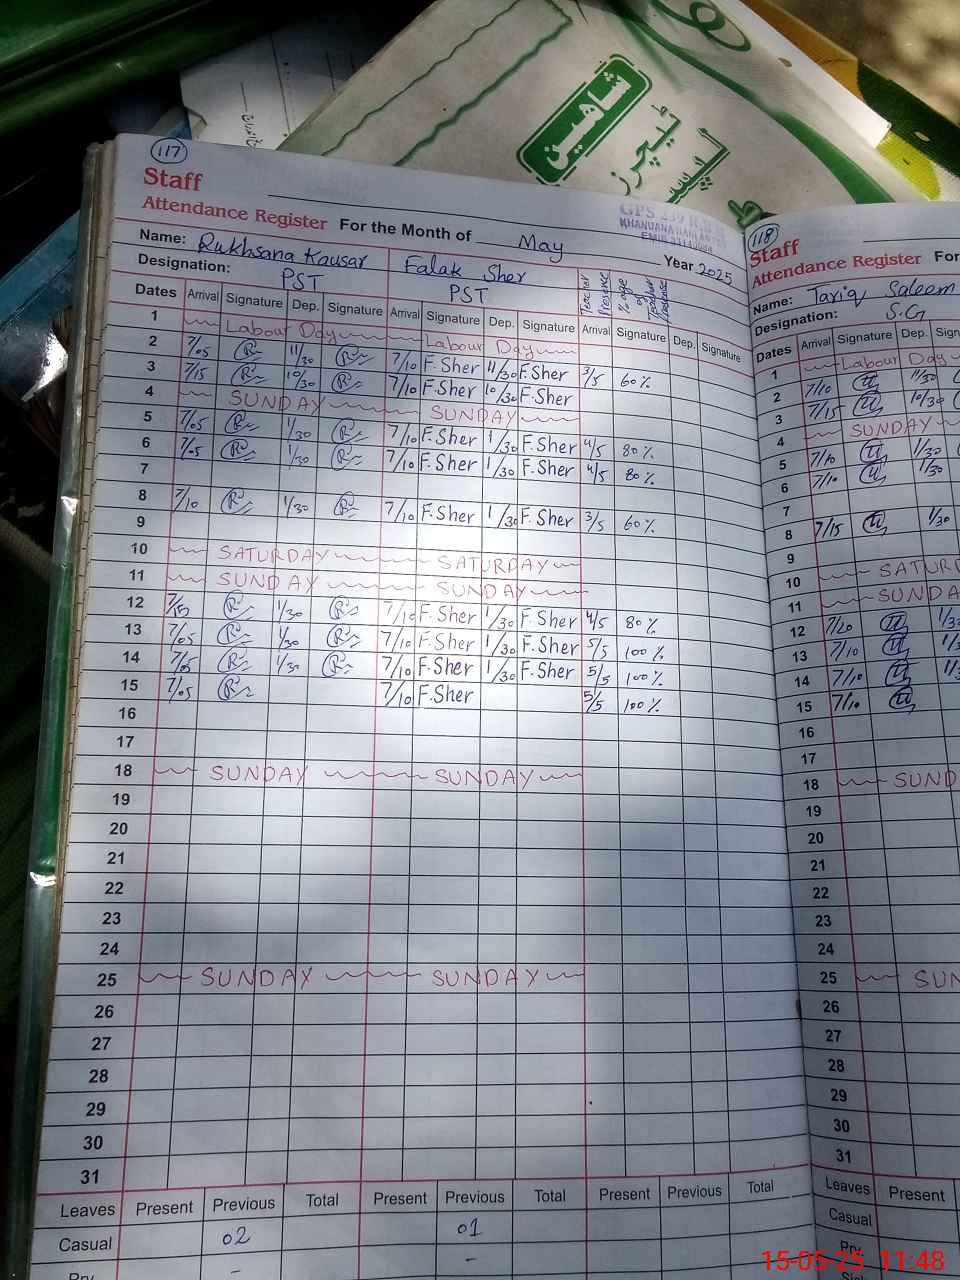 شاہین
ٹیچرز
117
Staff
Attendance Register For the Month of May Year 2025
GPS 239 R.B II
Name: Rukhsana Kausar Falak Sher
Designation: PST PST
Dates Arrival Signature Dep. Signature Arrival Signature Dep. Signature Arrival Signature Dep. Signature
Teacher Presence %age of Teacher Presence
1 Labour Day Labour Day
2 7/05 R 11/30 R 7/10 F.Sher 11/30 F.Sher 3/5 60%
3 7/15 R 10/30 R 7/10 F.Sher 10/30 F.Sher
4 SUNDAY SUNDAY
5 7/05 R 1/30 R 7/10 F.Sher 1/30 F.Sher 4/5 80%
6 7/05 R 1/30 R 7/10 F.Sher 1/30 F.Sher 4/5 80%
7
8 7/10 R 1/30 R 7/10 F.Sher 1/30 F.Sher 3/5 60%
9
10 SATURDAY SATURDAY
11 SUNDAY SUNDAY
12 7/15 R 1/30 R 7/10 F.Sher 1/30 F.Sher 4/5 80%
13 7/05 R 1/30 R 7/10 F.Sher 1/30 F.Sher 5/5 100%
14 7/05 R 1/30 R 7/10 F.Sher 1/30 F.Sher 5/5 100%
15 7/05 R 7/10 F.Sher 5/5 100%
16
17
18 SUNDAY SUNDAY
19
20
21
22
23
24
25 SUNDAY SUNDAY
26
27
28
29
30
31
Leaves Present Previous Total Present Previous Total Present Previous Total
Casual 02 01
Prv - -
118
Staff
Attendance Register For
Name: Tariq Saleem
Designation: S.G
Dates Arrival Signature Dep.
1 Labour Day
2 7/10 11/30
3 7/15 10/30
4 SUNDAY
5 7/10 1/30
6 7/10 1/30
7
8 7/15 1/30
9
10 SATURD
11 SUNDA
12 7/20
13 7/10
14 7/10
15 7/10
16
17
18 SUND
19
20
21
22
23
24
25 SUN
26
27
28
29
30
31
Leaves Present
Casual
Prv
15-05-25 11:48